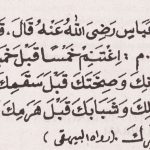 عَبَّاسٍ رَضِيَ اللهُ عَنْهُ قَالَ
م : اِغْتَنِمْ خَمْسًا قَبْلَ
وَصِحَّتَكَ قَبْلَ سَقَمِكَ
لِكَ وَشَبَابَكَ قَبْلَ هَرَمِكَ
رِكَ . (رواه البيهقى)